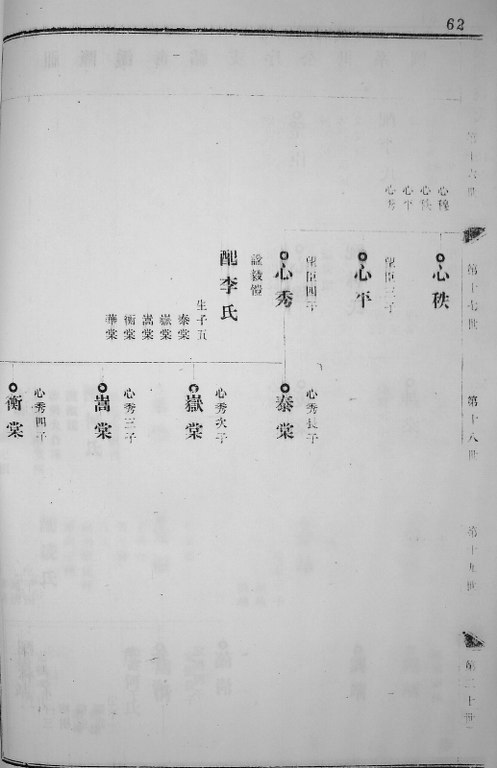 62
第十六世
心穠
心秩
心平
心秀
第十七世
心秩
望臣三子
心平
望臣四子
心秀
諡毅愷
配李氏
生子五
泰棠
嶽棠
嵩棠
衡棠
華棠
第十八世
心秀長子
泰棠
心秀次子
嶽棠
心秀三子
嵩棠
心秀四子
衡棠
第十九世
第二十世